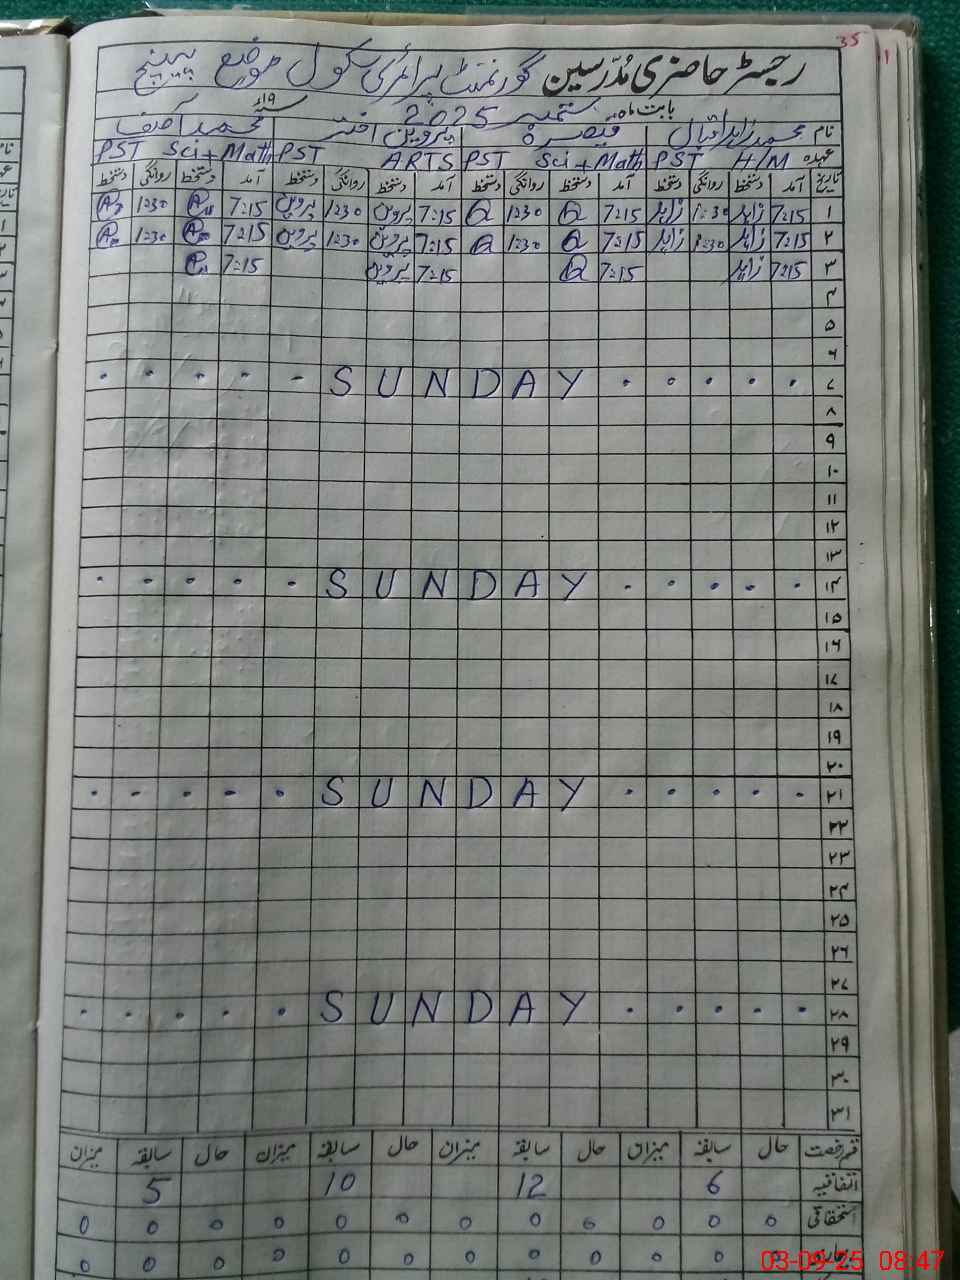 35
رجسٹر حاضری مُدّرسین گورنمنٹ پرائمری سکول موضع پینج
بابت ماہ ستمبر 2025 سنہ ۱۹ء
نام محمد زاہد اقبال قیصرہ پروین اختر محمد آصف
عہدہ PST H/M PST Sci+Math PST ARTS PST Sci+Math
تاریخ آمد دستخط روانگی دستخط آمد دستخط روانگی دستخط آمد دستخط روانگی دستخط آمد دستخط روانگی دستخط
۱ 7:15 زاہد 1:30 زاہد 7:15 Q 1230 Q 7:15 پروین 1230 پروین 7:15 1230
۲ 7:15 زاہد 1:30 زاہد 7:15 Q 1230 Q 7:15 پروین 1230 پروین 7:15 1230
۳ 7:15 زاہد 7:15 Q 7:15 پروین 7:15
۴
۵
۶
۷ SUNDAY
۸
۹
۱۰
۱۱
۱۲
۱۳
۱۴ SUNDAY
۱۵
۱۶
۱۷
۱۸
۱۹
۲۰
۲۱ SUNDAY
۲۲
۲۳
۲۴
۲۵
۲۶
۲۷
۲۸ SUNDAY
۲۹
۳۰
۳۱
قسم رخصت حال سابقہ میزان حال سابقہ میزان حال سابقہ میزان حال سابقہ میزان
اتفاقیہ 6 12 10 5
استحقاقی 0 0 0 0 0 0 0 0 0 0 0 0
0 0 0 0 0 0 0 0 0 0 0 0
03-09-25 08:47